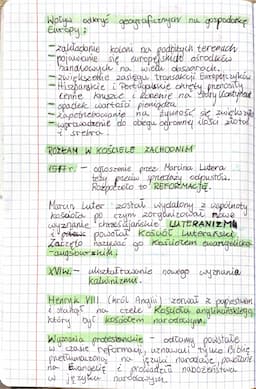 Wpływ odkryć geograficznych na gospodarkę
Europy:
- zakładanie kolonii na podbitych terenach
- pojawienie się europejskich ośrodków
handlowych na wielu obszarach
- zwiększenie zasięgu transakcji Europejczyków
- Hiszpańskie i Portugalskie okręty przenosiły
cenne kruszce i korzenie na Stary Kontynent
- spadek wartości pieniądza
- zapotrzebowanie na żywność się zwiększyło
- wprowadzenie do obiegu ogromnej ilości złota
i srebra.
ROZŁAM W KOŚCIELE ZACHODNIM
1517r. - ogłoszenie przez Marcina Lutera
tezy przeciw sprzedaży odpustów.
Rozpoczęło to REFORMACJĘ.
Marcin Luter został wydalony z wspólnoty
kościoła po czym zorganizował nowe
wyznanie chrześcijańskie LUTERANIZM
i powstał Kościół Luterański.
Zaczęto nazywać go Kościołem ewangelicko
-augsburskim.
XVIw. - ukształtowanie nowego wyznania
kalwinizmu.
Henryk VIII (król Anglii) zerwał z papiestwem
i stanął na czele Kościoła anglikańskiego,
który był kościołem narodowym.
Wyznania protestanckie - odłamy powstałe
w czasie reformacji, uznawali tylko Biblię
przetłumaczoną na języki narodowe, powołanie
na Ewangelię i prowadzili nabożeństwa
w języku narodowym.